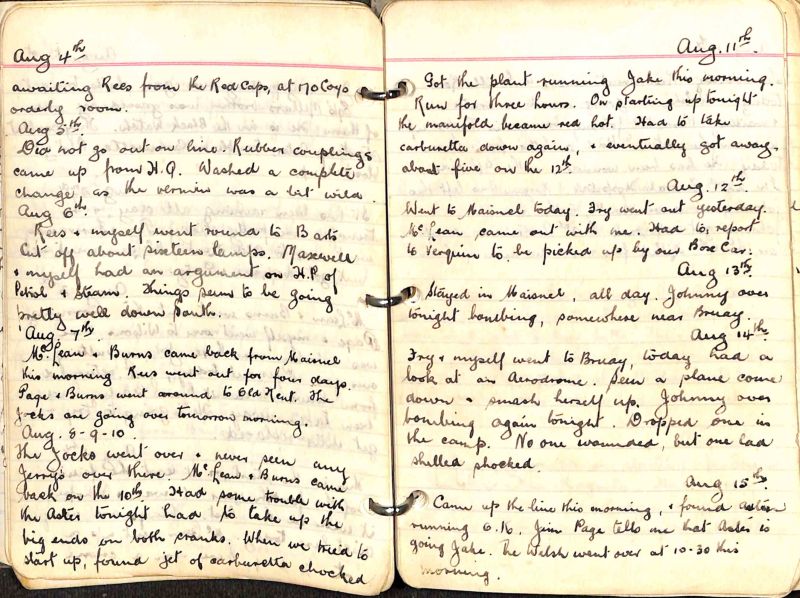 Aug 4th
awaiting Rees from the Red Caps, at 170 Coys
orderly room.
Aug 5th.
Did not go out on line. Rubber couplings
came up from H.Q. Washed a complete
change, as the vermin was a bit wild.
Aug 6th.
Rees & myself went round to Barts
Cut off about sixteen lamps. Maxwell
& myself had an argument on H.P. of
Petrol & Steam. Things seem to be going
pretty well down South.
Aug. 7th.
McLean & Burns came back from Maisnel
this morning Rees went out for four days.
Page & Burns went around to Old Kent. The
Jocks are going over tomorrow morning.
Aug. 8-9-10.
The Jocks went over & never seen any
Jerry's over there. McLean & Burns came
back on the 10th. Had some trouble with
the Aster tonight had to take up the
big ends on both cranks. When we tried to
start up, found jet of carburetta chocked
Aug. 11th.
Got the plant running Jake this morning.
Run for three hours. On starting up tonight
the manifold became red hot. Had to take
carburetta down again, & eventually got away
about five on the 12th.
Aug. 12th.
Went to Maisnel today. Fry went out yesterday.
McLean came out with me. Had to, report
to Verquin to be picked up by our Box Car.
Aug 13th.
Stayed in Maisnel, all day. Johnny over
tonight bombing, somewhere near Bruay.
Aug 14th.
Fry & myself went to Bruay, today had a
look at an Aerodrome. Seen a plane come
down & smash herself up. Johnny over
bombing again tonight. Dropped one in
the camp. No one wounded, but one lad
shelled shocked.
Aug 15th.
Came up the line this morning, & found Aster
running O.K. Jim Page tells me that Aster is
going Jake. The Welsh went over at 10-30 this
morning.